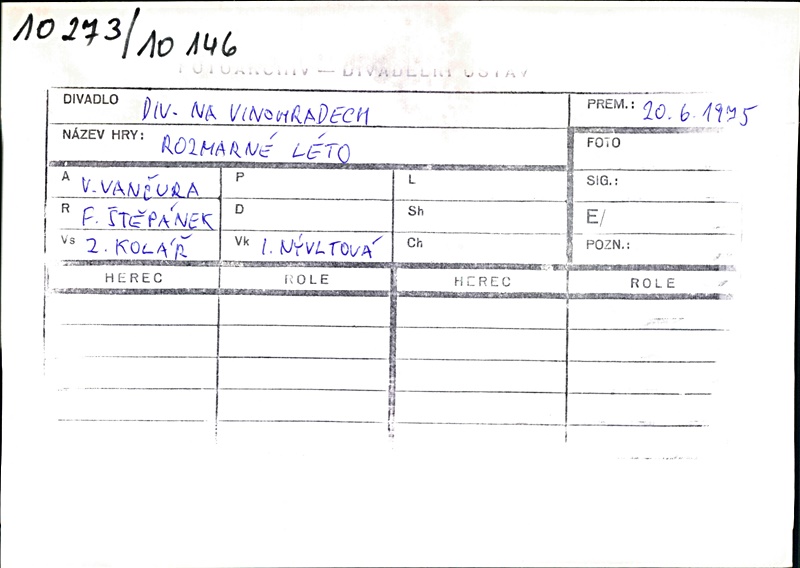 10 273/10 146
FOTOARCHIV — DIVADELNÍ ÚSTAV
DIVADLO DIV. NA VINOHRADECH PREM.: 20.6.1975
NÁZEV HRY: ROZMARNÉ LÉTO FOTO
A V. VANČURA P L SIG.:
R F. ŠTĚPÁNEK D Sh E/
Vs Z. KOLÁŘ Vk I. NÝVLTOVÁ Ch POZN.:
HEREC ROLE HEREC ROLE